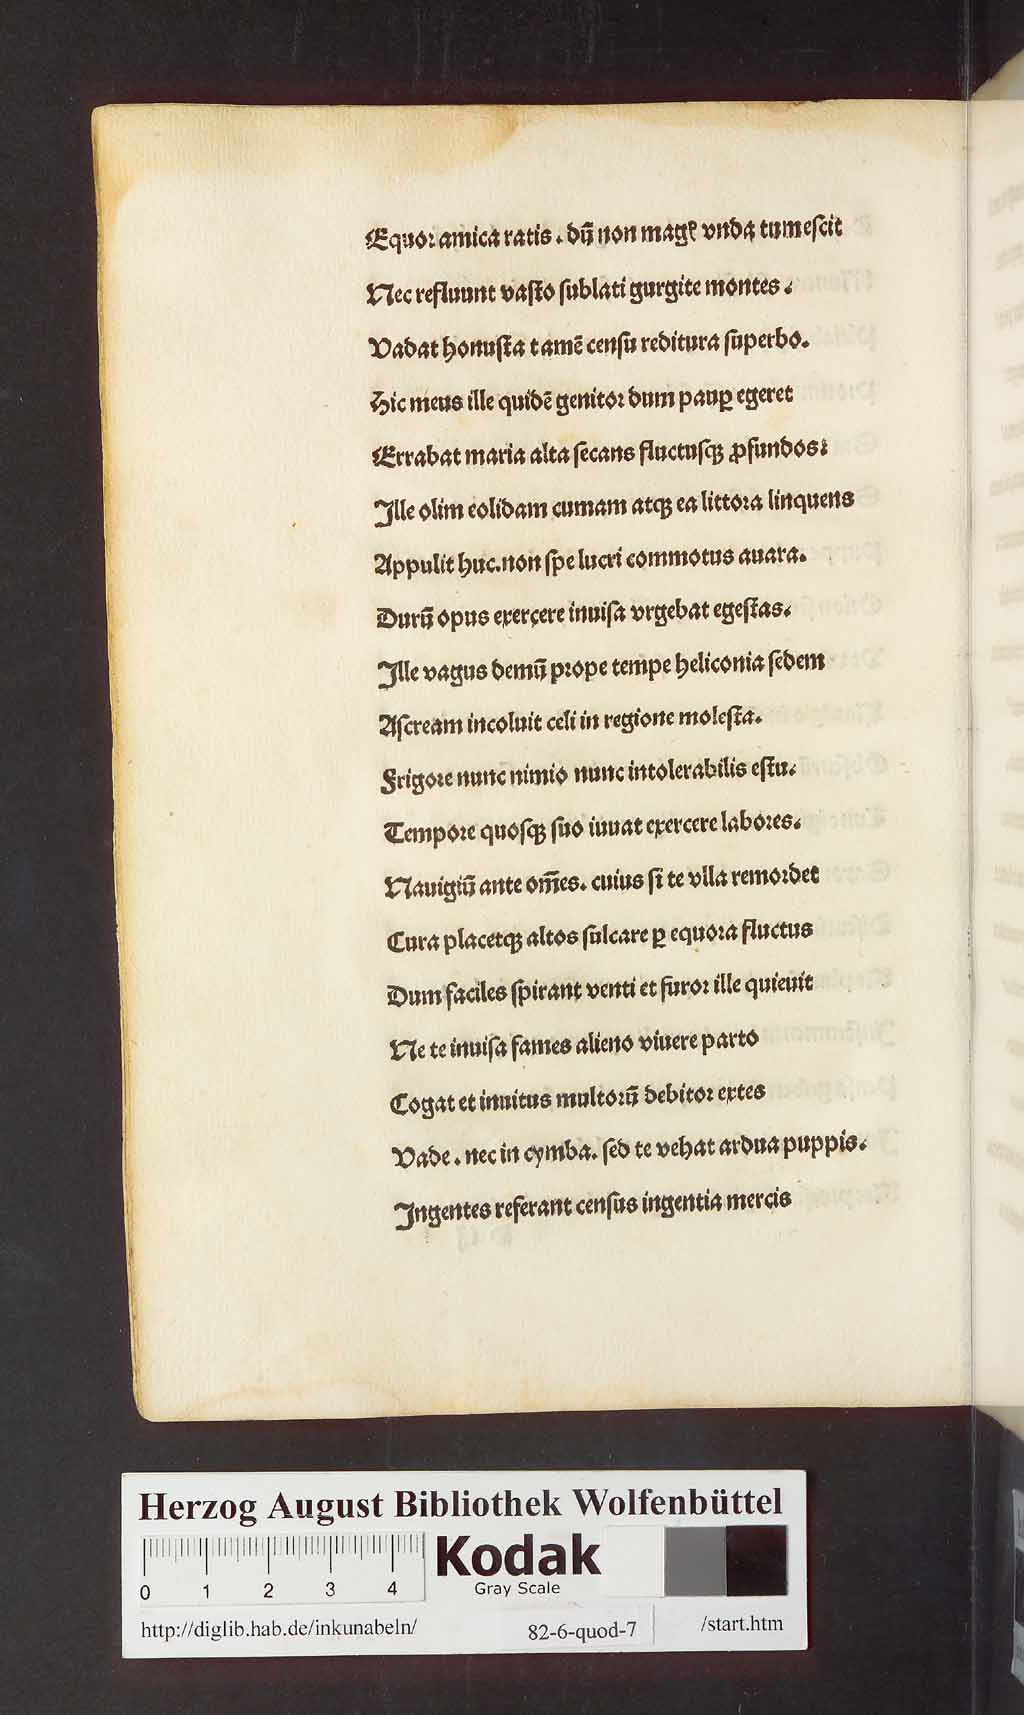 Equoꝛ amica ratis . dū non magꝭ vnda tumeſcit
Nec refluunt vaſto ſublati gurgite montes .
Vadat honuſta tamē cenſu reditura ſuperbo.
Hic meus ille quidē genitoꝛ dum pauꝑ egeret
Errabat maria alta ſecans fluctuſqꝫ ꝓfundos:
Ille olim eolidam cumam atqꝫ ea littoꝛa linquens
Appulit huc. non ſpe lucri commotus auara.
Durū opus exercere inuiſa vrgebat egeſtas.
Ille vagus demū pꝛope tempe heliconia ſedem
Aſcream incoluit celi in regione moleſta.
Frigoꝛe nunc nimio nunc intolerabilis eſtu.
Tempoꝛe quoſqꝫ ſuo iuuat exercere laboꝛes.
Nauigiū ante om̄es. cuius ſi te vlla remoꝛdet
Cura placetqꝫ altos ſulcare ꝑ equoꝛa fluctus
Dum faciles ſpirant venti et furoꝛ ille quieuit
Ne te inuiſa fames alieno viuere parto
Cogat et inuitus multoꝛū debitoꝛ extes
Vade . nec in cymba. ſed te vehat ardua puppis.
Ingentes referant cenſus ingentia mercis
Herzog August Bibliothek Wolfenbüttel
0 1 2 3 4
Kodak
Gray Scale
http://diglib.hab.de/inkunabeln/ 82-6-quod-7 /start.htm